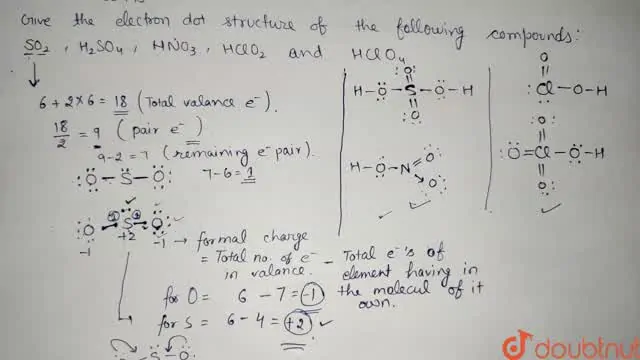 Give the electron dot structure of the following compounds:
SO2, H2SO4, HNO3, HClO2 and HClO4
6 + 2×6 = 18 (Total valance e⁻).
18/2 = 9 (pair e⁻)
9-2 = 7 (remaining e⁻ pair).
7-6 = 1
O - S - O
O S O
-1 +2 -1 → formal charge
= Total no. of e⁻ in valance. - Total e⁻'s of element having in the molecul of it own.
for O = 6 - 7 = -1
for S = 6 - 4 = +2 ✓
O S O
O
H - O - S - O - H
O
H - O - N = O
O
O
Cl - O - H
O
O = Cl - O - H
O
doubtnut